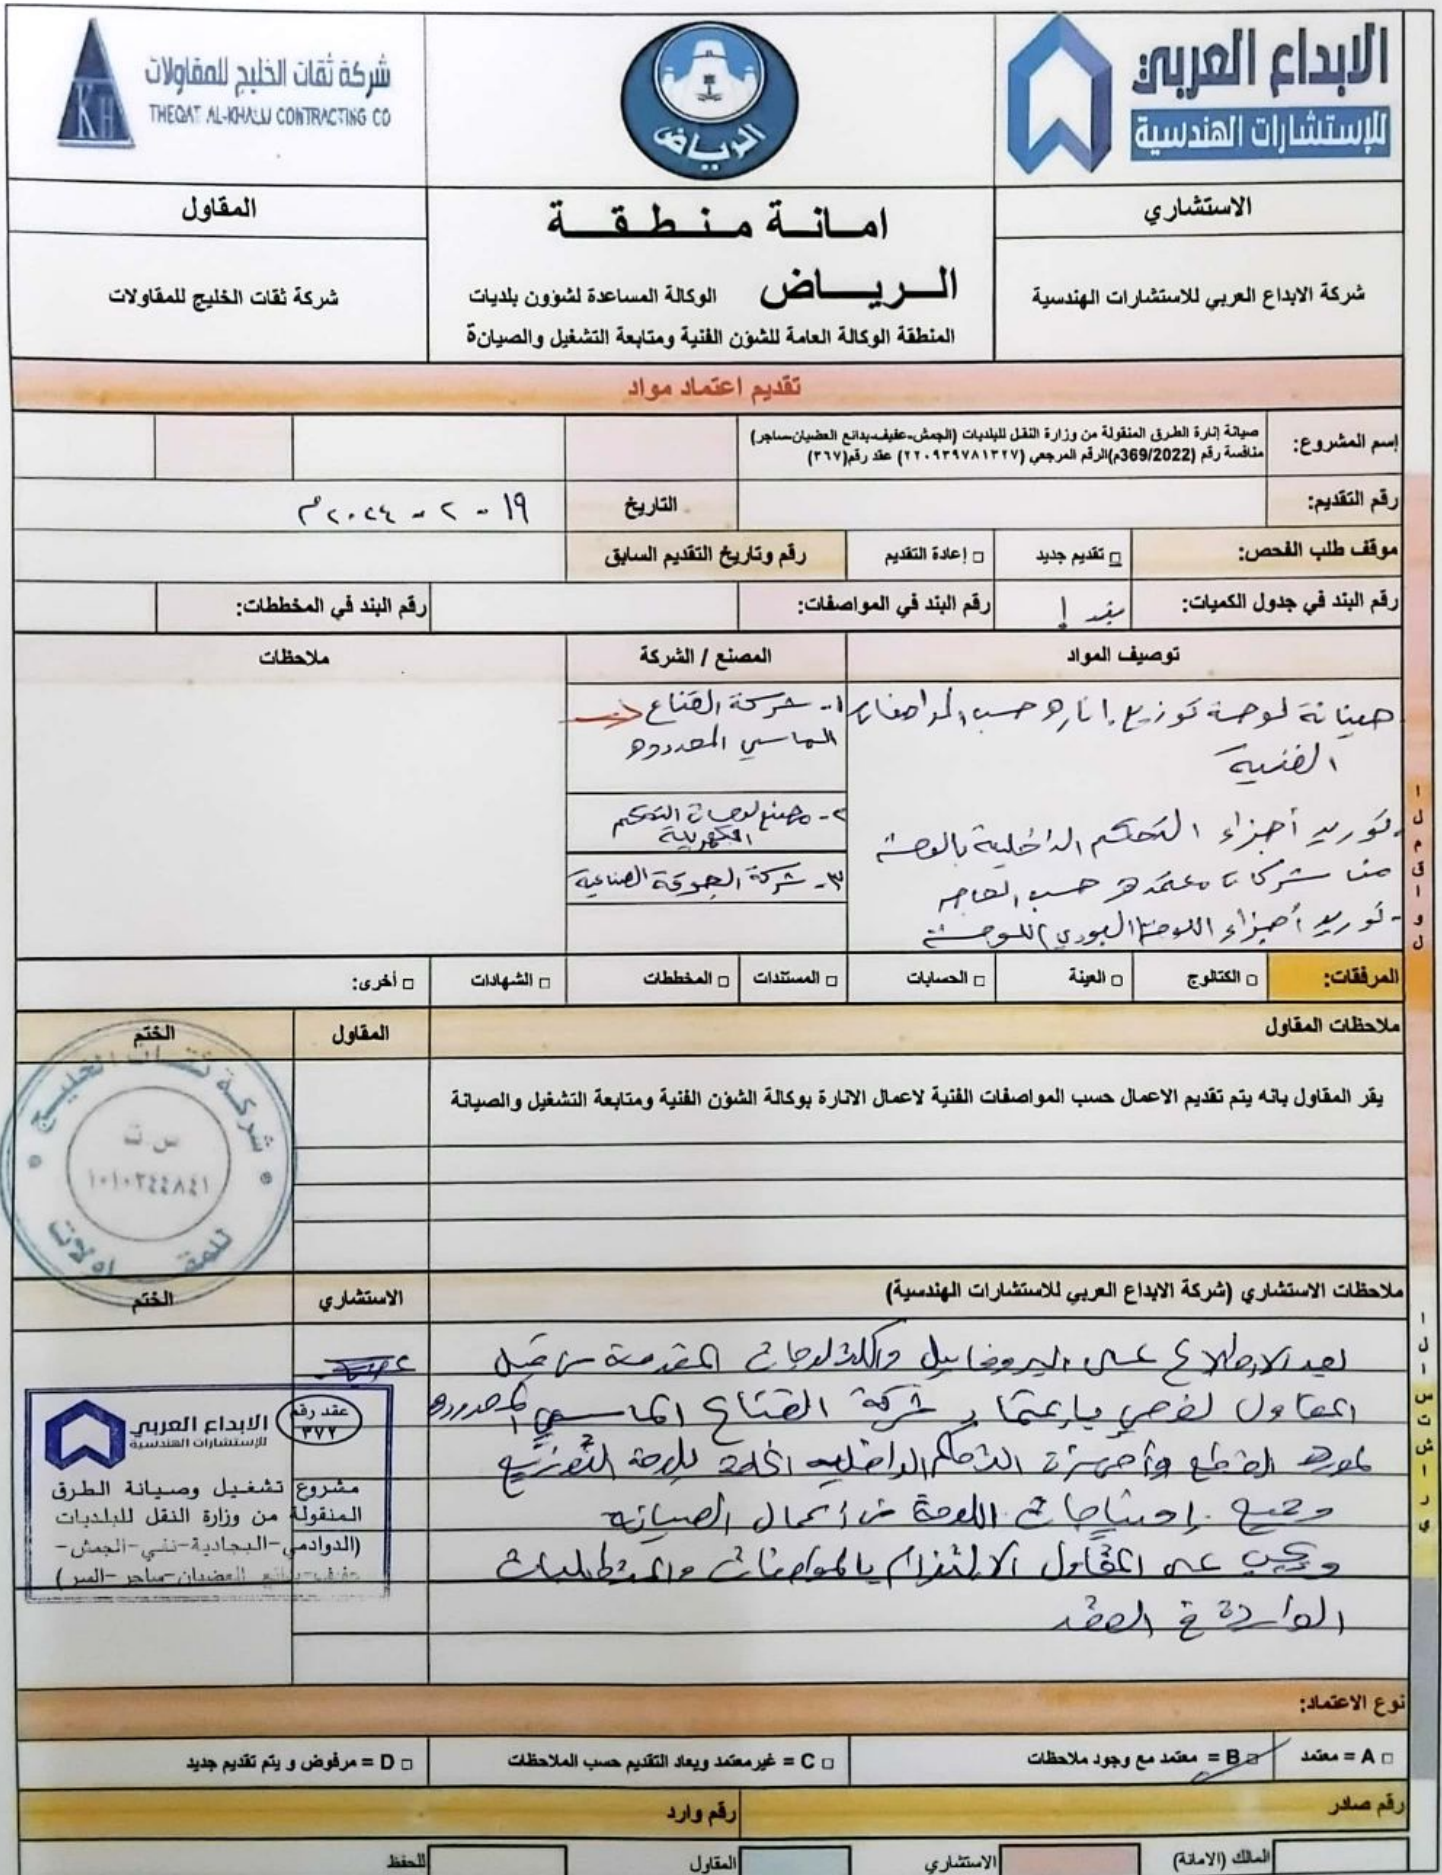 الابداع العربي
للإستشارات الهندسية
الرياض
شركة ثقات الخليج للمقاولات
THEQAT AL-KHALIJ CONTRACTING CO
KH
الاستشاري
امـانـة مـنـطـقـة
المقاول
شركة الابداع العربي للاستشارات الهندسية
الـريـــاض الوكالة المساعدة لشؤون بلديات
شركة ثقات الخليج للمقاولات
المنطقة الوكالة العامة للشؤن الفنية ومتابعة التشغيل والصيانة
تقديم اعتماد مواد
إسم المشروع:
صيانة إنارة الطرق المنقولة من وزارة النقل للبلديات (الجمش-عفيف-بدائع العضيان-ساجر)
منافسة رقم (369/2022م)الرقم المرجعي (٢٢٠٩٣٩٧٨١٣٢٧) عقد رقم(٣٦٧)
رقم التقديم:
التاريخ
١٩ - ٢ - ٢٠٢٤م
موقف طلب الفحص:
□ تقديم جديد
□ إعادة التقديم
رقم وتاريخ التقديم السابق
رقم البند في جدول الكميات:
بند ١
رقم البند في المواصفات:
رقم البند في المخططات:
توصيف المواد
المصنع / الشركة
ملاحظات
صيانة لوحة توزيع انارة حسب المواصفات
الفنية
توريد أجزاء التحكم الداخلية بالوحة
من شركات معتمدة حسب الحاجه
- توريد أجزاء اللوحة (البودي) للوحة
١- شركة القناع
الماسي المحدودة
٢- مصنع لوحات التحكم
الكهربائية
٣- شركة الصناعية
المرفقات:
□ الكتالوج
□ العينة
□ الحسابات
□ المستندات
□ المخططات
□ الشهادات
□ أخرى:
ملاحظات المقاول
المقاول
الختم
يقر المقاول بانه يتم تقديم الاعمال حسب المواصفات الفنية لاعمال الانارة بوكالة الشؤن الفنية ومتابعة التشغيل والصيانة
شركة ثقات الخليج
س.ت
١٠١٠٢٤٤٨٤١
للمقاولات
ملاحظات الاستشاري (شركة الابداع العربي للاستشارات الهندسية)
الاستشاري
الختم
بعد الاطلاع على البروفايل والكتلوجات المقدمة من قبل
المقاول نوصي باعتماد شركة القناع الماسي المحدودة
لتوريد القطع وأجهزة التحكم الداخليه للوحة التوزيع
وجميع إحتياجات اللوحة من أعمال الصيانه
ويجب على المقاول الالتزام بالمواصفات والمتطلبات
الواردة في العقد
عقد رقم
٣٧٧
الابداع العربي
للإستشارات الهندسية
مشروع تشغيل وصيانة الطرق
المنقولة من وزارة النقل للبلديات
(الدوادمي-البجادية-نفي-الجمش-
عفيف-بدائع العضيان-ساجر-السر)
نوع الاعتماد:
□ A = معتمد
□ B = معتمد مع وجود ملاحظات
□ C = غيرمعتمد ويعاد التقديم حسب الملاحظات
□ D = مرفوض و يتم تقديم جديد
رقم صادر
رقم وارد
المالك (الامانة)
الاستشاري
المقاول
للحفظ